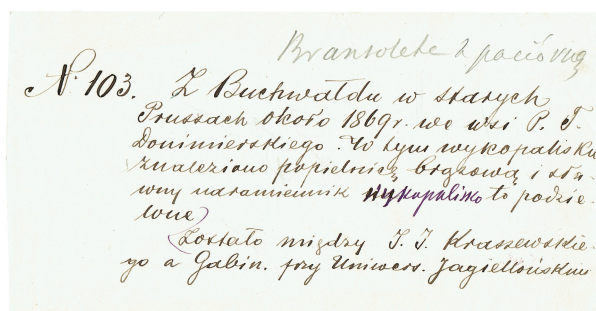 Bransoleta z paciórką
N. 103. Z Buchwałdu w starych
Prussach około 1869 r. we wsi P. T.
Donimierskiego. W tym wykopalisku
znaleziono popielnicę brązową i sła-
wny naramiennik wykopalisko to podzie-
lone
Zostało między J. I. Kraszewskie-
go a Gabin. przy Uniwers. Jagiellońskim